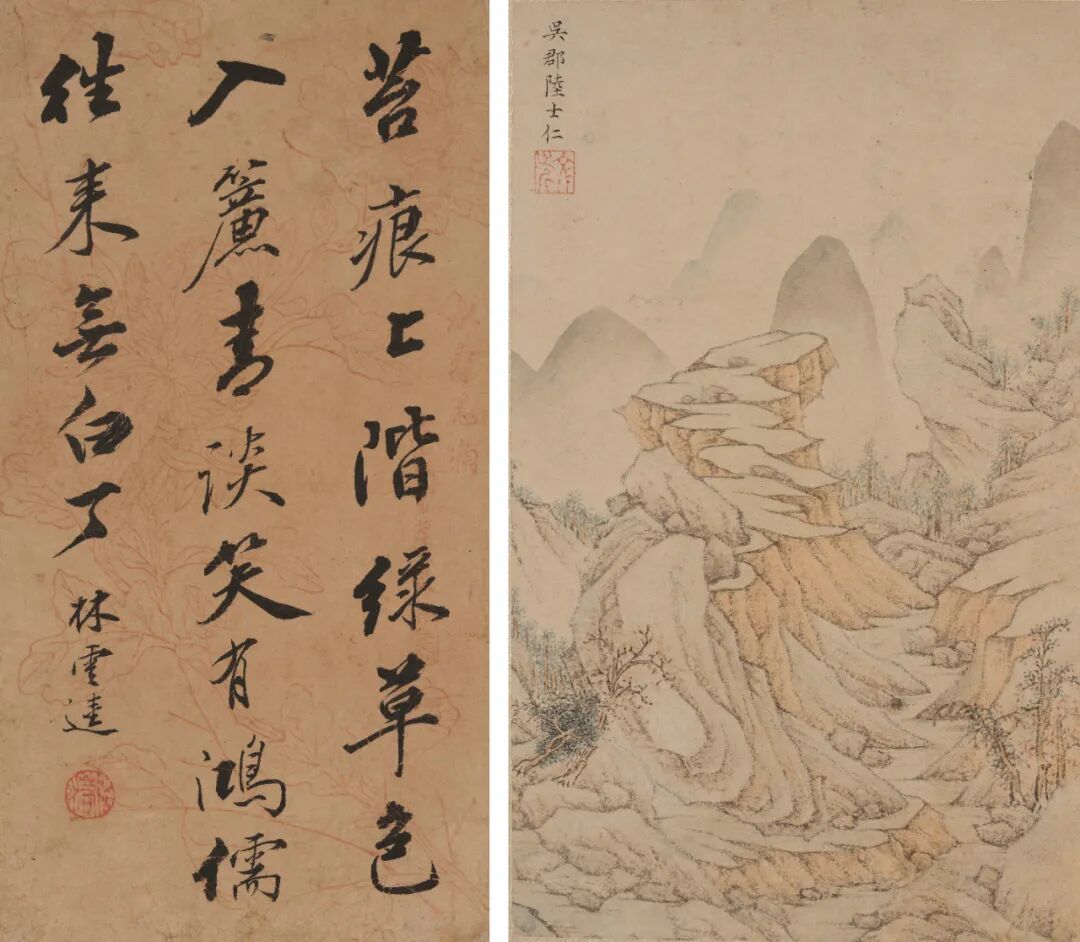 苔痕上階緑草色
入簾青談笑有鴻儒
往来無白丁
林雲逵
吳郡陸士仁